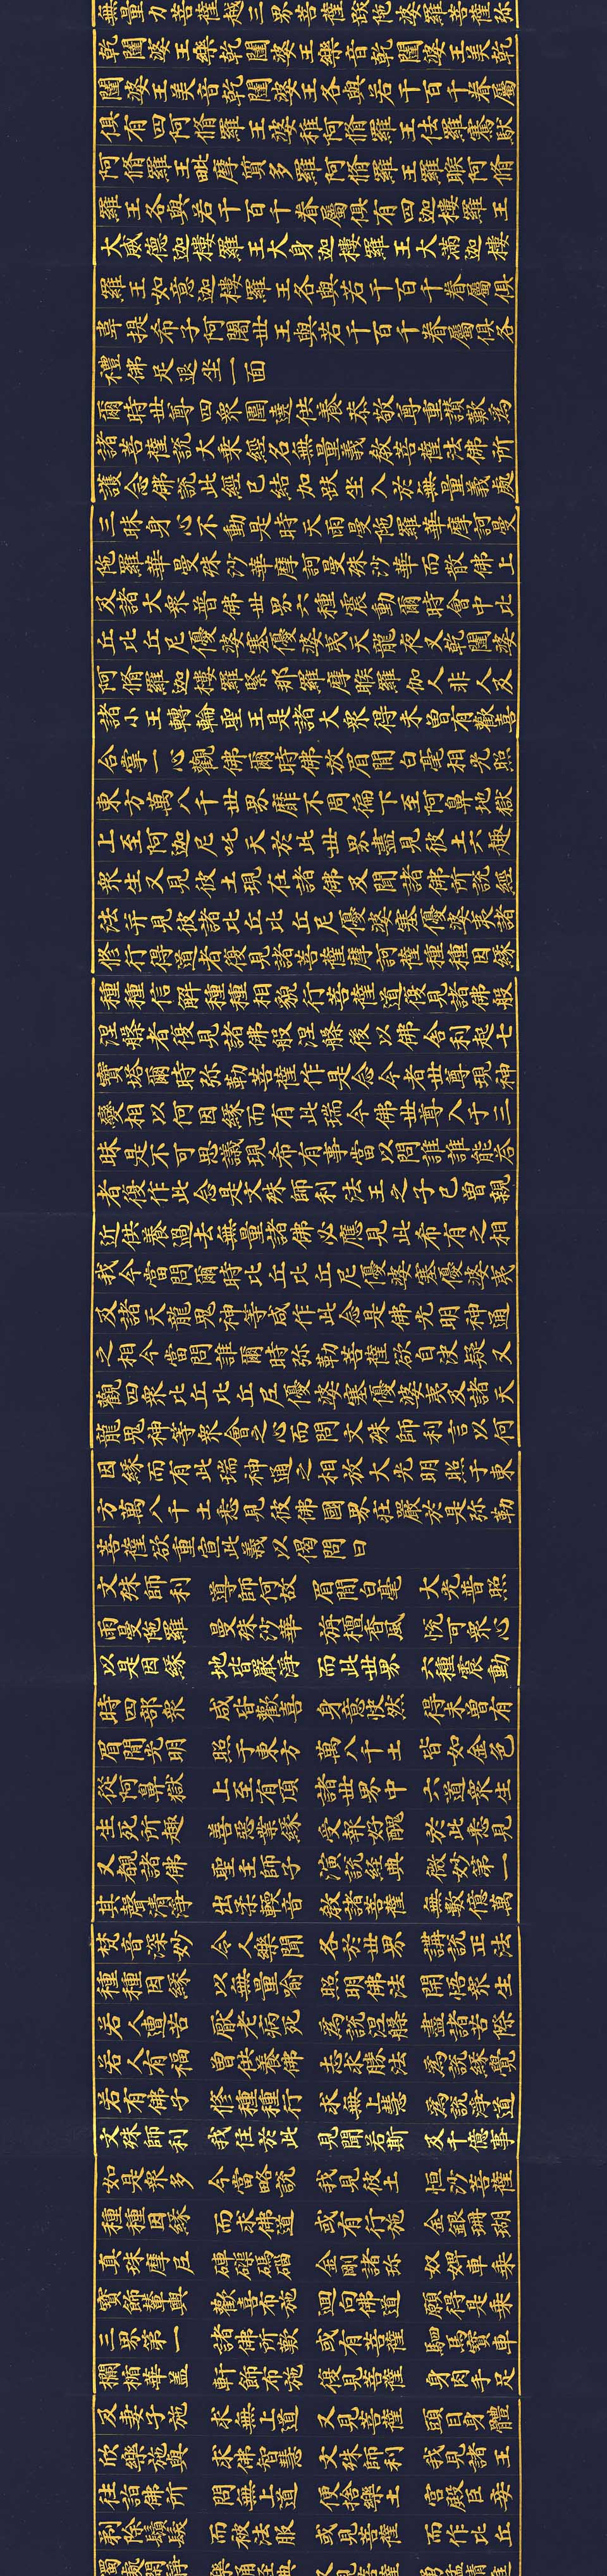 無量力菩薩越三界菩薩跋陀婆羅菩薩弥
乾闥婆王樂乾闥婆王樂音乾闥婆王美乾
闥婆王美音乾闥婆王各與若干百千眷屬
俱有四阿脩羅王婆稚阿脩羅王佉羅騫馱
阿脩羅王毗摩質多羅阿脩羅王羅睺阿脩
羅王各與若干百千眷屬俱有四迦樓羅王
大威德迦樓羅王大身迦樓羅王大滿迦樓
羅王如意迦樓羅王各與若干百千眷屬俱
韋提希子阿闍世王與若干百千眷屬俱各
禮佛足退坐一面
爾時世尊四衆圍遶供養恭敬尊重讚歎為
諸菩薩說大乘經名無量義教菩薩法佛所
護念佛說此經已結加趺坐入於無量義處
三昧身心不動是時天雨曼陁羅華摩訶曼
陁羅華曼殊沙華摩訶曼殊沙華而散佛上
及諸大衆普佛世界六種震動爾時會中比
丘比丘尼優婆塞優婆夷天龍夜叉乾闥婆
阿脩羅迦樓羅緊那羅摩睺羅伽人非人及
諸小王轉輪聖王是諸大衆得未曾有歡喜
合掌一心觀佛爾時佛放眉間白毫相光照
東方萬八千世界靡不周徧下至阿鼻地獄
上至阿迦尼吒天於此世界盡見彼土六趣
衆生又見彼土現在諸佛及聞諸佛所說經
法并見彼諸比丘比丘尼優婆塞優婆夷諸
修行得道者復見諸菩薩摩訶薩種種因緣
種種信解種種相貌行菩薩道復見諸佛般
涅槃者復見諸佛般涅槃後以佛舍利起七
寶塔爾時弥勒菩薩作是念今者世尊現神
變相以何因緣而有此瑞今佛世尊入于三
昧是不可思議現希有事當以問誰誰能荅
者復作此念是文殊師利法王之子已曾親
近供養過去無量諸佛必應見此希有之相
我今當問爾時比丘比丘尼優婆塞優婆夷
及諸天龍鬼神等咸作此念是佛光明神通
之相今當問誰爾時弥勒菩薩欲自決疑又
觀四衆比丘比丘尼優婆塞優婆夷及諸天
龍鬼神等衆會之心而問文殊師利言以何
因緣而有此瑞神通之相放大光明照于東
方萬八千土悉見彼佛國界莊嚴於是弥勒
菩薩欲重宣此義以偈問曰
文殊師利 導師何故 眉間白毫 大光普照
雨曼陁羅 曼殊沙華 旃檀香風 悅可衆心
以是因緣 地皆嚴淨 而此世界 六種震動
時四部衆 咸皆歡喜 身意快然 得未曾有
眉間光明 照于東方 萬八千土 皆如金色
從阿鼻獄 上至有頂 諸世界中 六道衆生
生死所趣 善惡業緣 受報好醜 於此悉見
又覩諸佛 聖主師子 演說經典 微妙第一
其聲清淨 出柔軟音 教諸菩薩 無數億萬
梵音深妙 令人樂聞 各於世界 講說正法
種種因緣 以無量喻 照明佛法 開悟衆生
若人遭苦 厭老病死 為說涅槃 盡諸苦際
若人有福 曾供養佛 志求勝法 為說緣覺
若有佛子 修種種行 求無上慧 為說淨道
文殊師利 我住於此 見聞若斯 及千億事
如是衆多 今當略說 我見彼土 恒沙菩薩
種種因緣 而求佛道 或有行施 金銀珊瑚
真珠摩尼 硨磲碼碯 金剛諸珍 奴婢車乘
寶飾輦輿 歡喜布施 迴向佛道 願得是乘
三界第一 諸佛所歎 或有菩薩 駟馬寶車
欄楯華蓋 軒飾布施 復見菩薩 身肉手足
及妻子施 求無上道 又見菩薩 頭目身體
欣樂施與 求佛智慧 文殊師利 我見諸王
往詣佛所 問無上道 便捨樂土 宮殿臣妾
剃除鬚髮 而被法服 或見菩薩 而作比丘
獨處閑靜 樂誦經典 又見菩薩 勇猛精進